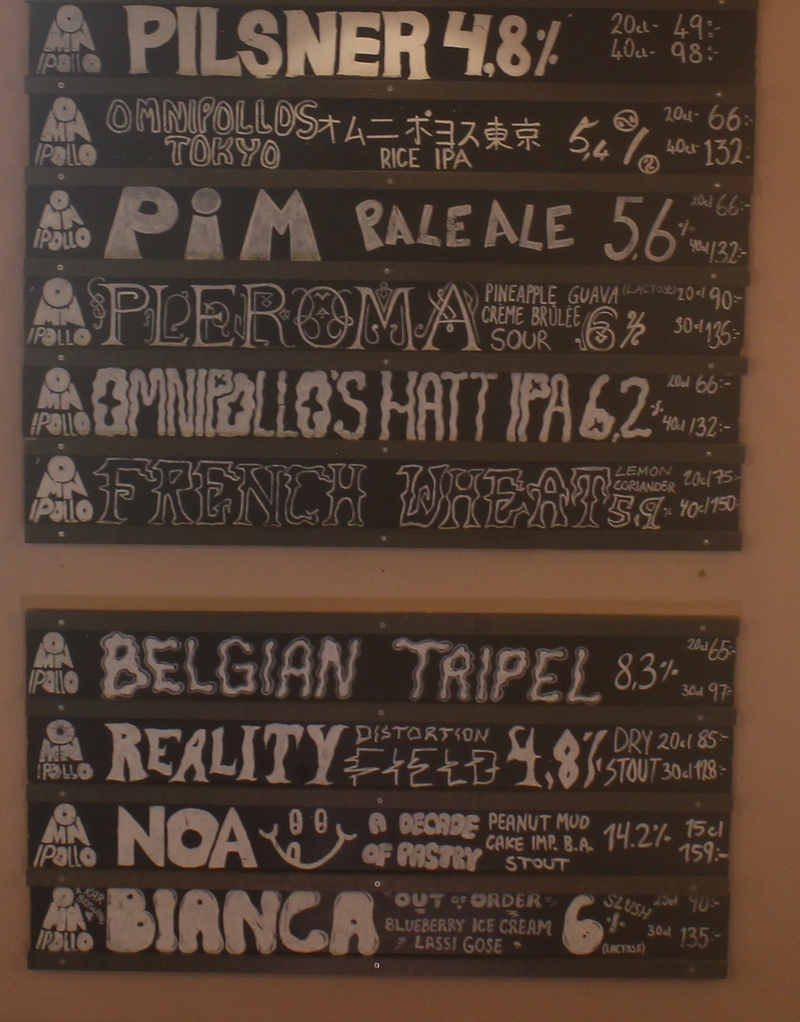 OMNIPOLLO PILSNER 4,8% 20cl- 49:-
40cl- 98:-
OMNIPOLLO OMNIPOLLOS オムニポヨス東京 5,4% 20cl- 66:-
TOKYO RICE IPA 40cl- 132:-
OMNIPOLLO PiM PALE ALE 5,6% 20cl 66:-
40cl 132:-
OMNIPOLLO PLEROMA PINEAPPLE GUAVA (LACTOSE) 20cl 90:-
CRÈME BRÛLÉE 6%
SOUR 30cl 135:-
OMNIPOLLO OMNIPOLLO'S HATT IPA 6,2% 20cl 66:-
40cl 132:-
OMNIPOLLO FRENCH WHEAT LEMON 20cl 75:-
CORIANDER
5,9% 40cl 150:-
OMNIPOLLO BELGIAN TRIPEL 8,3% 20cl 65:-
30cl 97:-
OMNIPOLLO REALITY DISTORTION 4,8% DRY 20cl 85:-
FIELD STOUT 30cl 128:-
OMNIPOLLO NOA A DECADE PEANUT MUD 14.2% 15cl
OF PASTRY CAKE IMP. B.A. 159:-
STOUT
OMNIPOLLO BIANCA "OUT OF ORDER" 6% SLUSH 20cl 90:-
BLUEBERRY ICE CREAM 30cl 135:-
LASSI GOSE (LACTOSE)